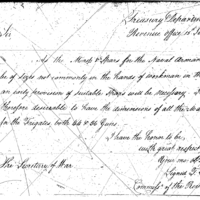 Treasury Departm
Revenue office 12 Ju
Sir
As the Masts & Spars for the Naval Armam
be of Sizes not commonly in the hands of workmen in th
an early provision of suitable Spars will be necessary.
therefore desirable to have the dimensions of all the Ma
for the Frigates, both 44 & 36 Guns.
I have the honor to be,
with great respect
Signed T.
The Secretary of War
Commiss of the Rev